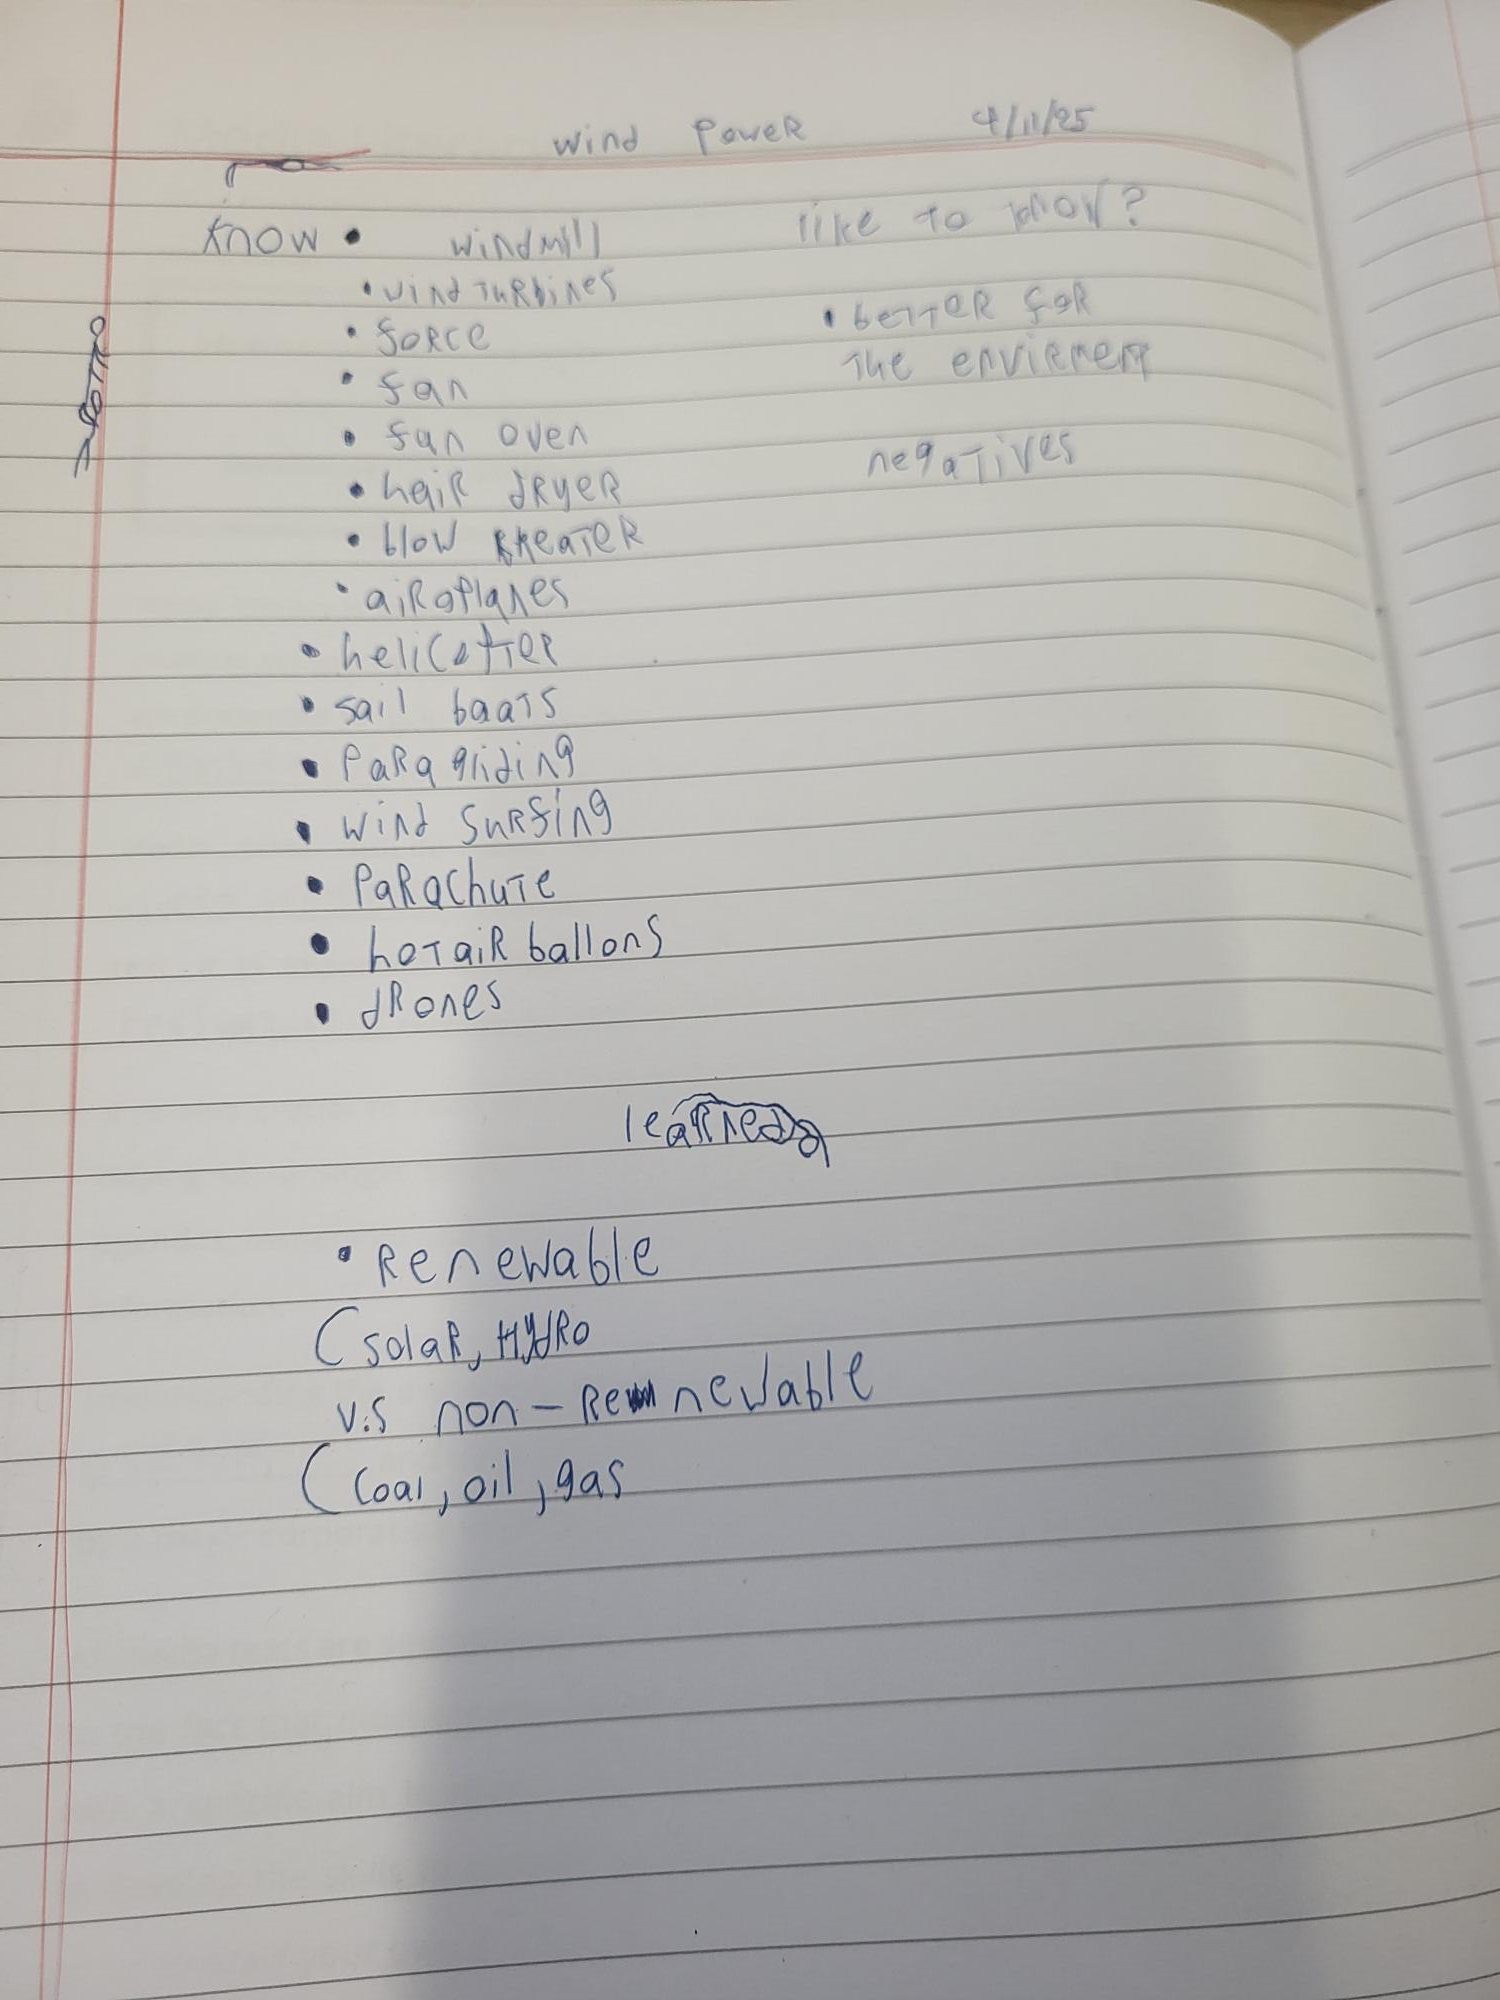 Wind Power 4/11/25
Know • windmill
• wind turbines
• force
• fan
• fan oven
• hair dryer
• blow heater
• airoplanes
• sail boats
• Para gliding
• wind surfing
• Parachute
• hot air ballons
• drones
like to know?
• better for
the envirement
negatives
learned
• Renewable
(solar, Hydro
v.s non-Renewable
(coal, oil, gas